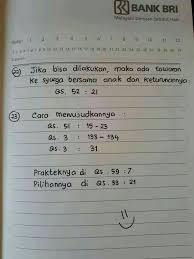 BANK BRI
Melayani Dengan Setulus Hati
22 Jika bisa dilakukan, maka ada tawaran
Ke syurga bersama anak dan keturunannya.
QS. 52 : 21
23 Cara mewusudkannya :
QS. 51 : 15 - 23
QS. 3 : 133 - 134
QS. 3 : 31
Prakteknya di QS. 59 : 7
Pilihannya di QS. 33 : 21